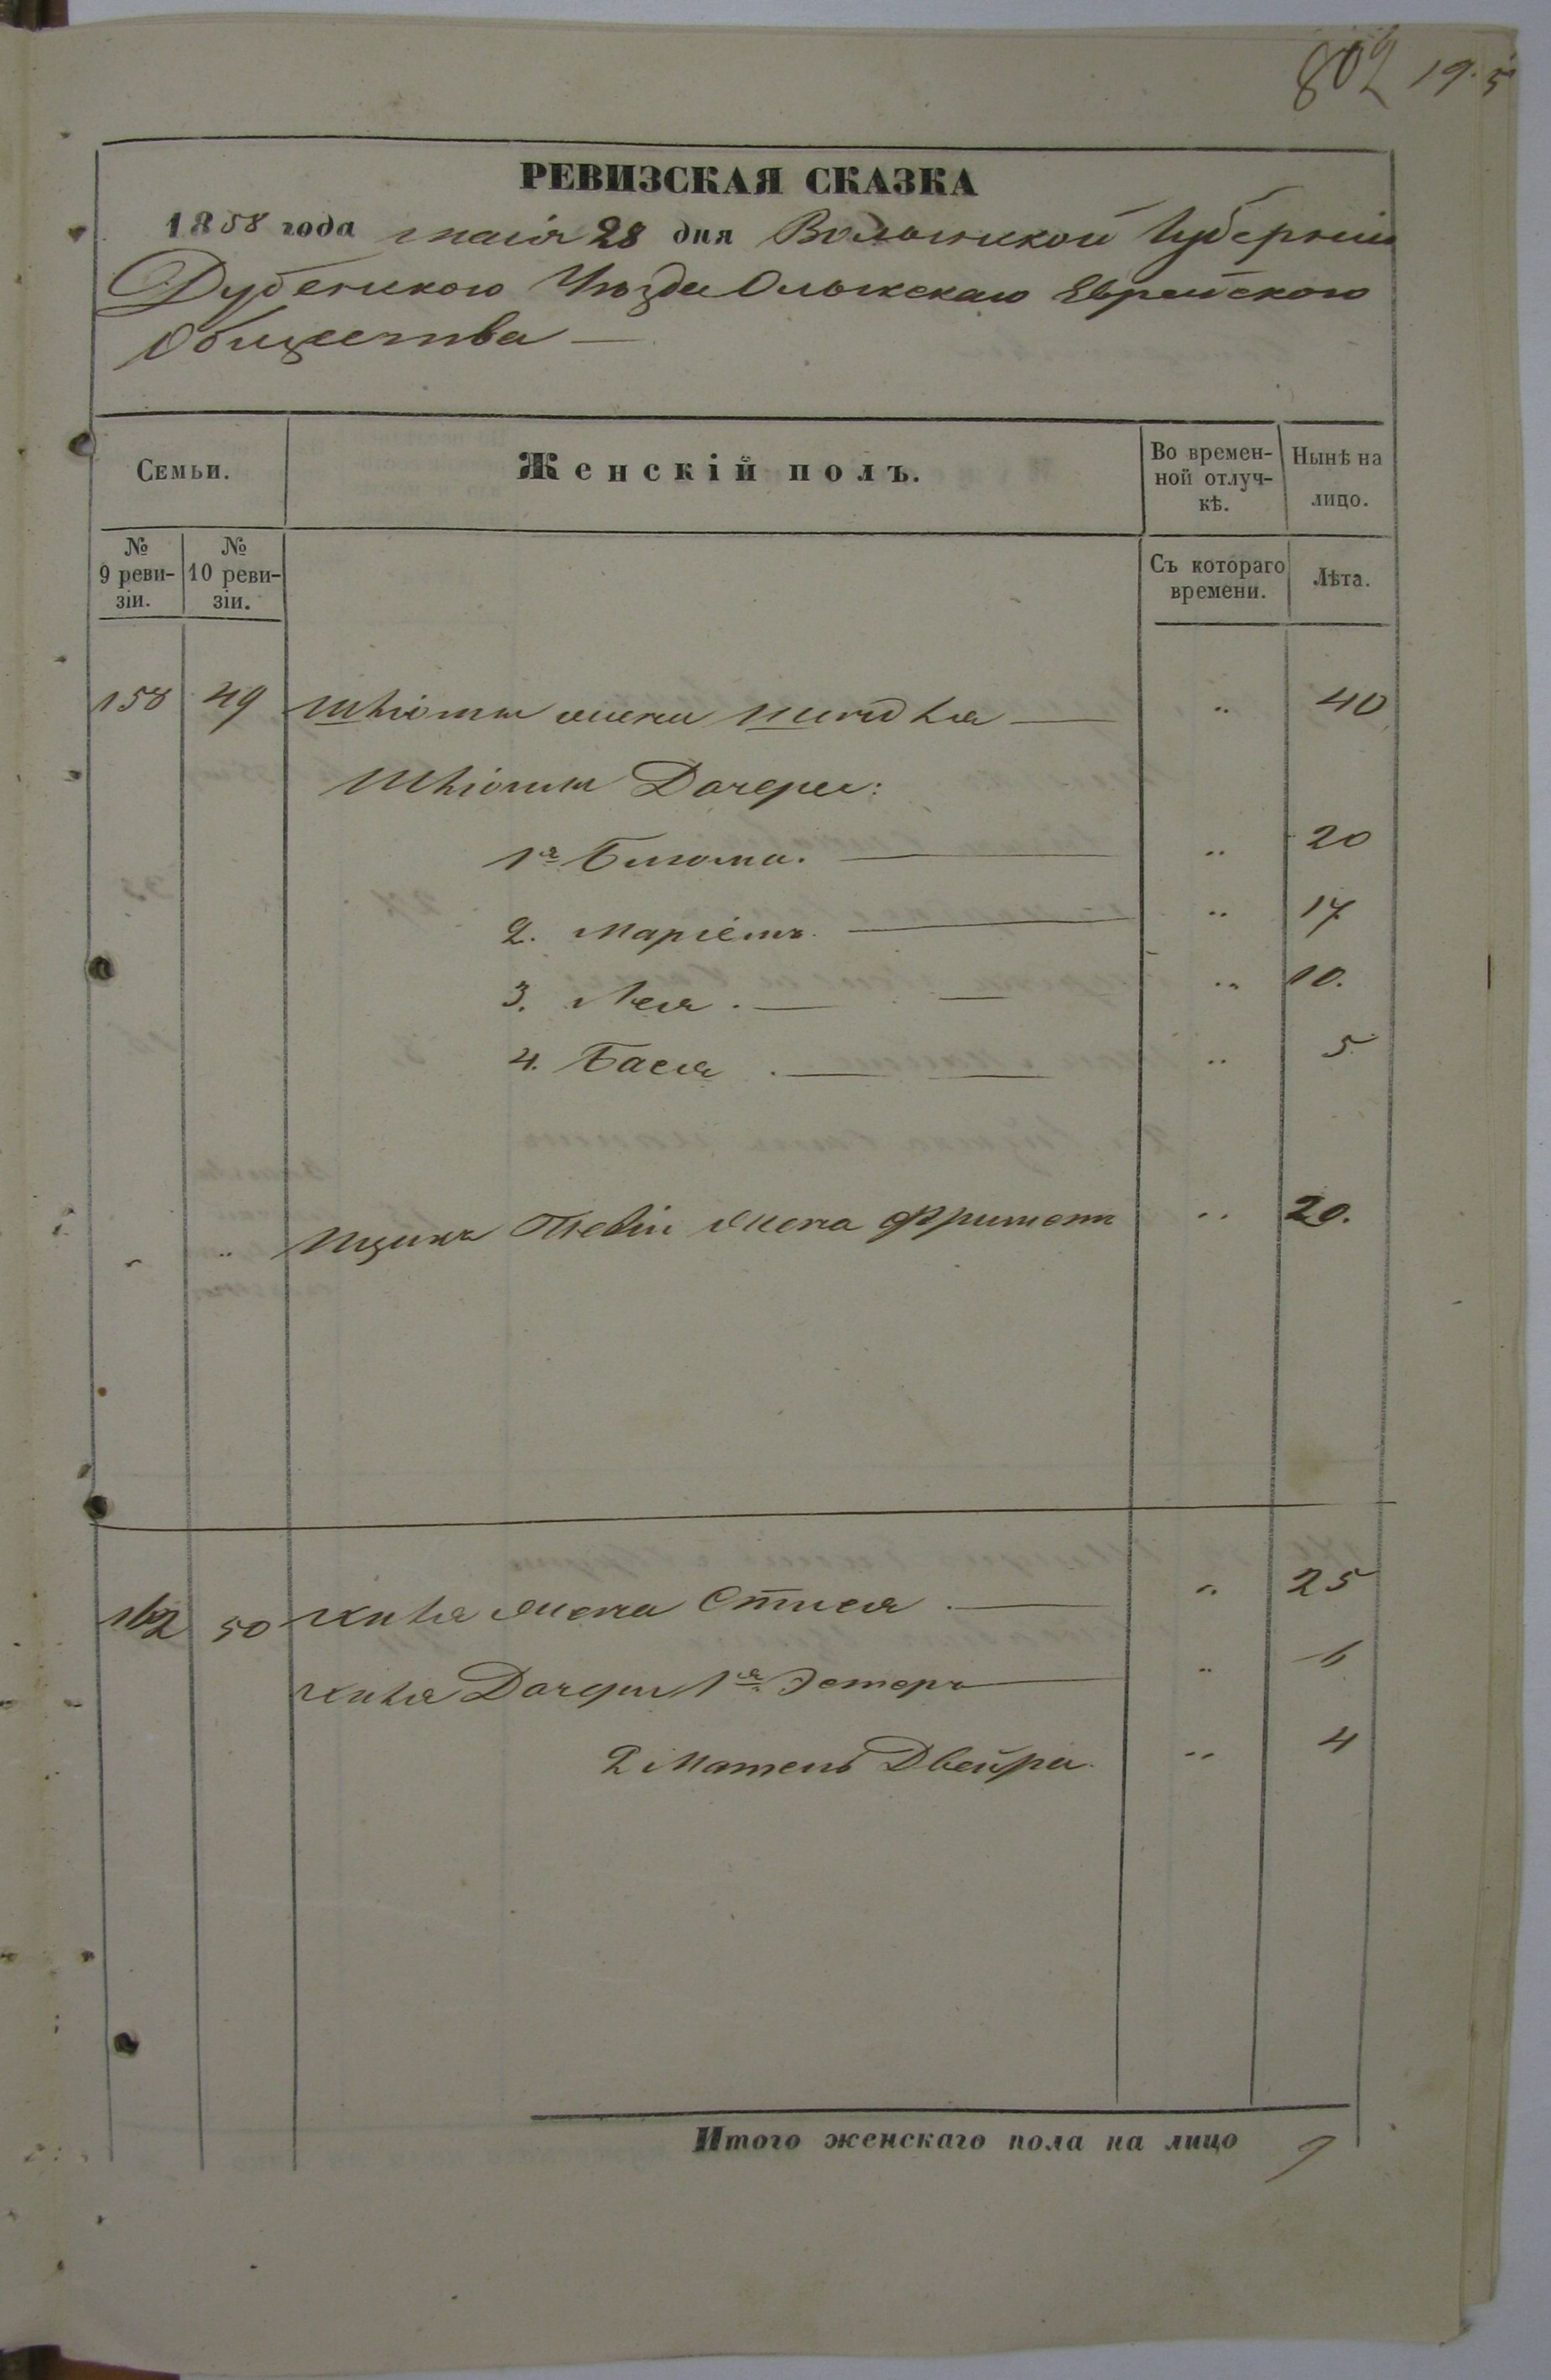 802 19.5
РЕВИЗСКАЯ СКАЗКА
1858 года маія 28 дня Волынской Губерніи
Дубенского Уѣзда Олыкскаго Еврейского
Общества —
Семьи.
Женскій полъ.
Во времен-
ной отлуч-
кѣ.
Нынѣ на
лицо.
№
9 реви-
зіи.
№
10 реви-
зіи.
Съ котораго
времени.
Лѣта.
158 49 жена — " 40
Дочери:
1я — " 20
2. Маріемъ — " 17
3. Лея — " 10.
4. Бася — " 5
" " жена " 20.
162 50 жена — " 25
Дочери 1я Эстеръ — " 6
2 Двейра " 4
Итого женскаго пола на лицо 9